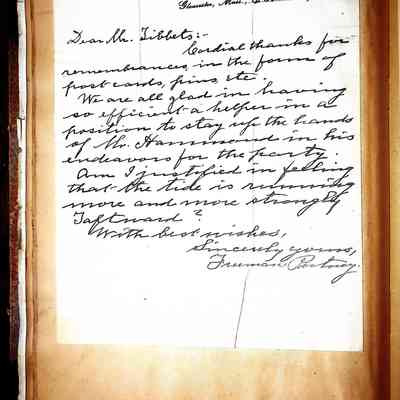 Gloucester, Mass.,
Dear Mr. Tibbets:-
Cordial thanks for
remembrances in the form of
post cards, pins, etc.
We are all glad in having
so efficient a helper in a
position to stay up the hands
of Mr. Hammond in his
endeavors for the party.
Am I justified in feeling
that the tide is running
more and more strongly
Taftward?
With best wishes,
Sincerely yours,
Freeman Putney.